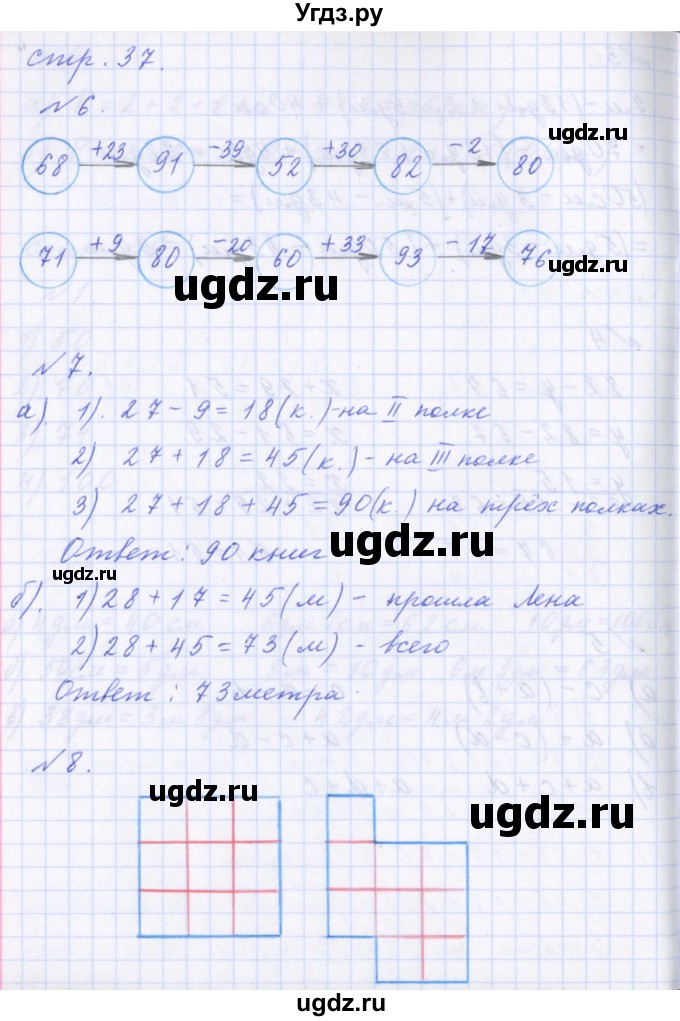 Угдз.ру
стр. 37.
ugdz.ru
№6.
68 +23 91 -39 52 +30 82 -2 80
ugdz.ru
71 +9 80 -20 60 +33 93 -17 76
ugdz.ru
ugdz.ru
№7.
а). 1). 27 - 9 = 18 (к.) - на II полке
2) 27 + 18 = 45 (к.) - на III полке
3) 27 + 18 + 45 = 90 (к.) на трёх полках.
Ответ: 90 книг
ugdz.ru
ugdz.ru
б). 1) 28 + 17 = 45 (м) - прошла Лена
2) 28 + 45 = 73 (м) - всего
Ответ: 73 метра.
№8.
ugdz.ru
ugdz.ru
ugdz.ru